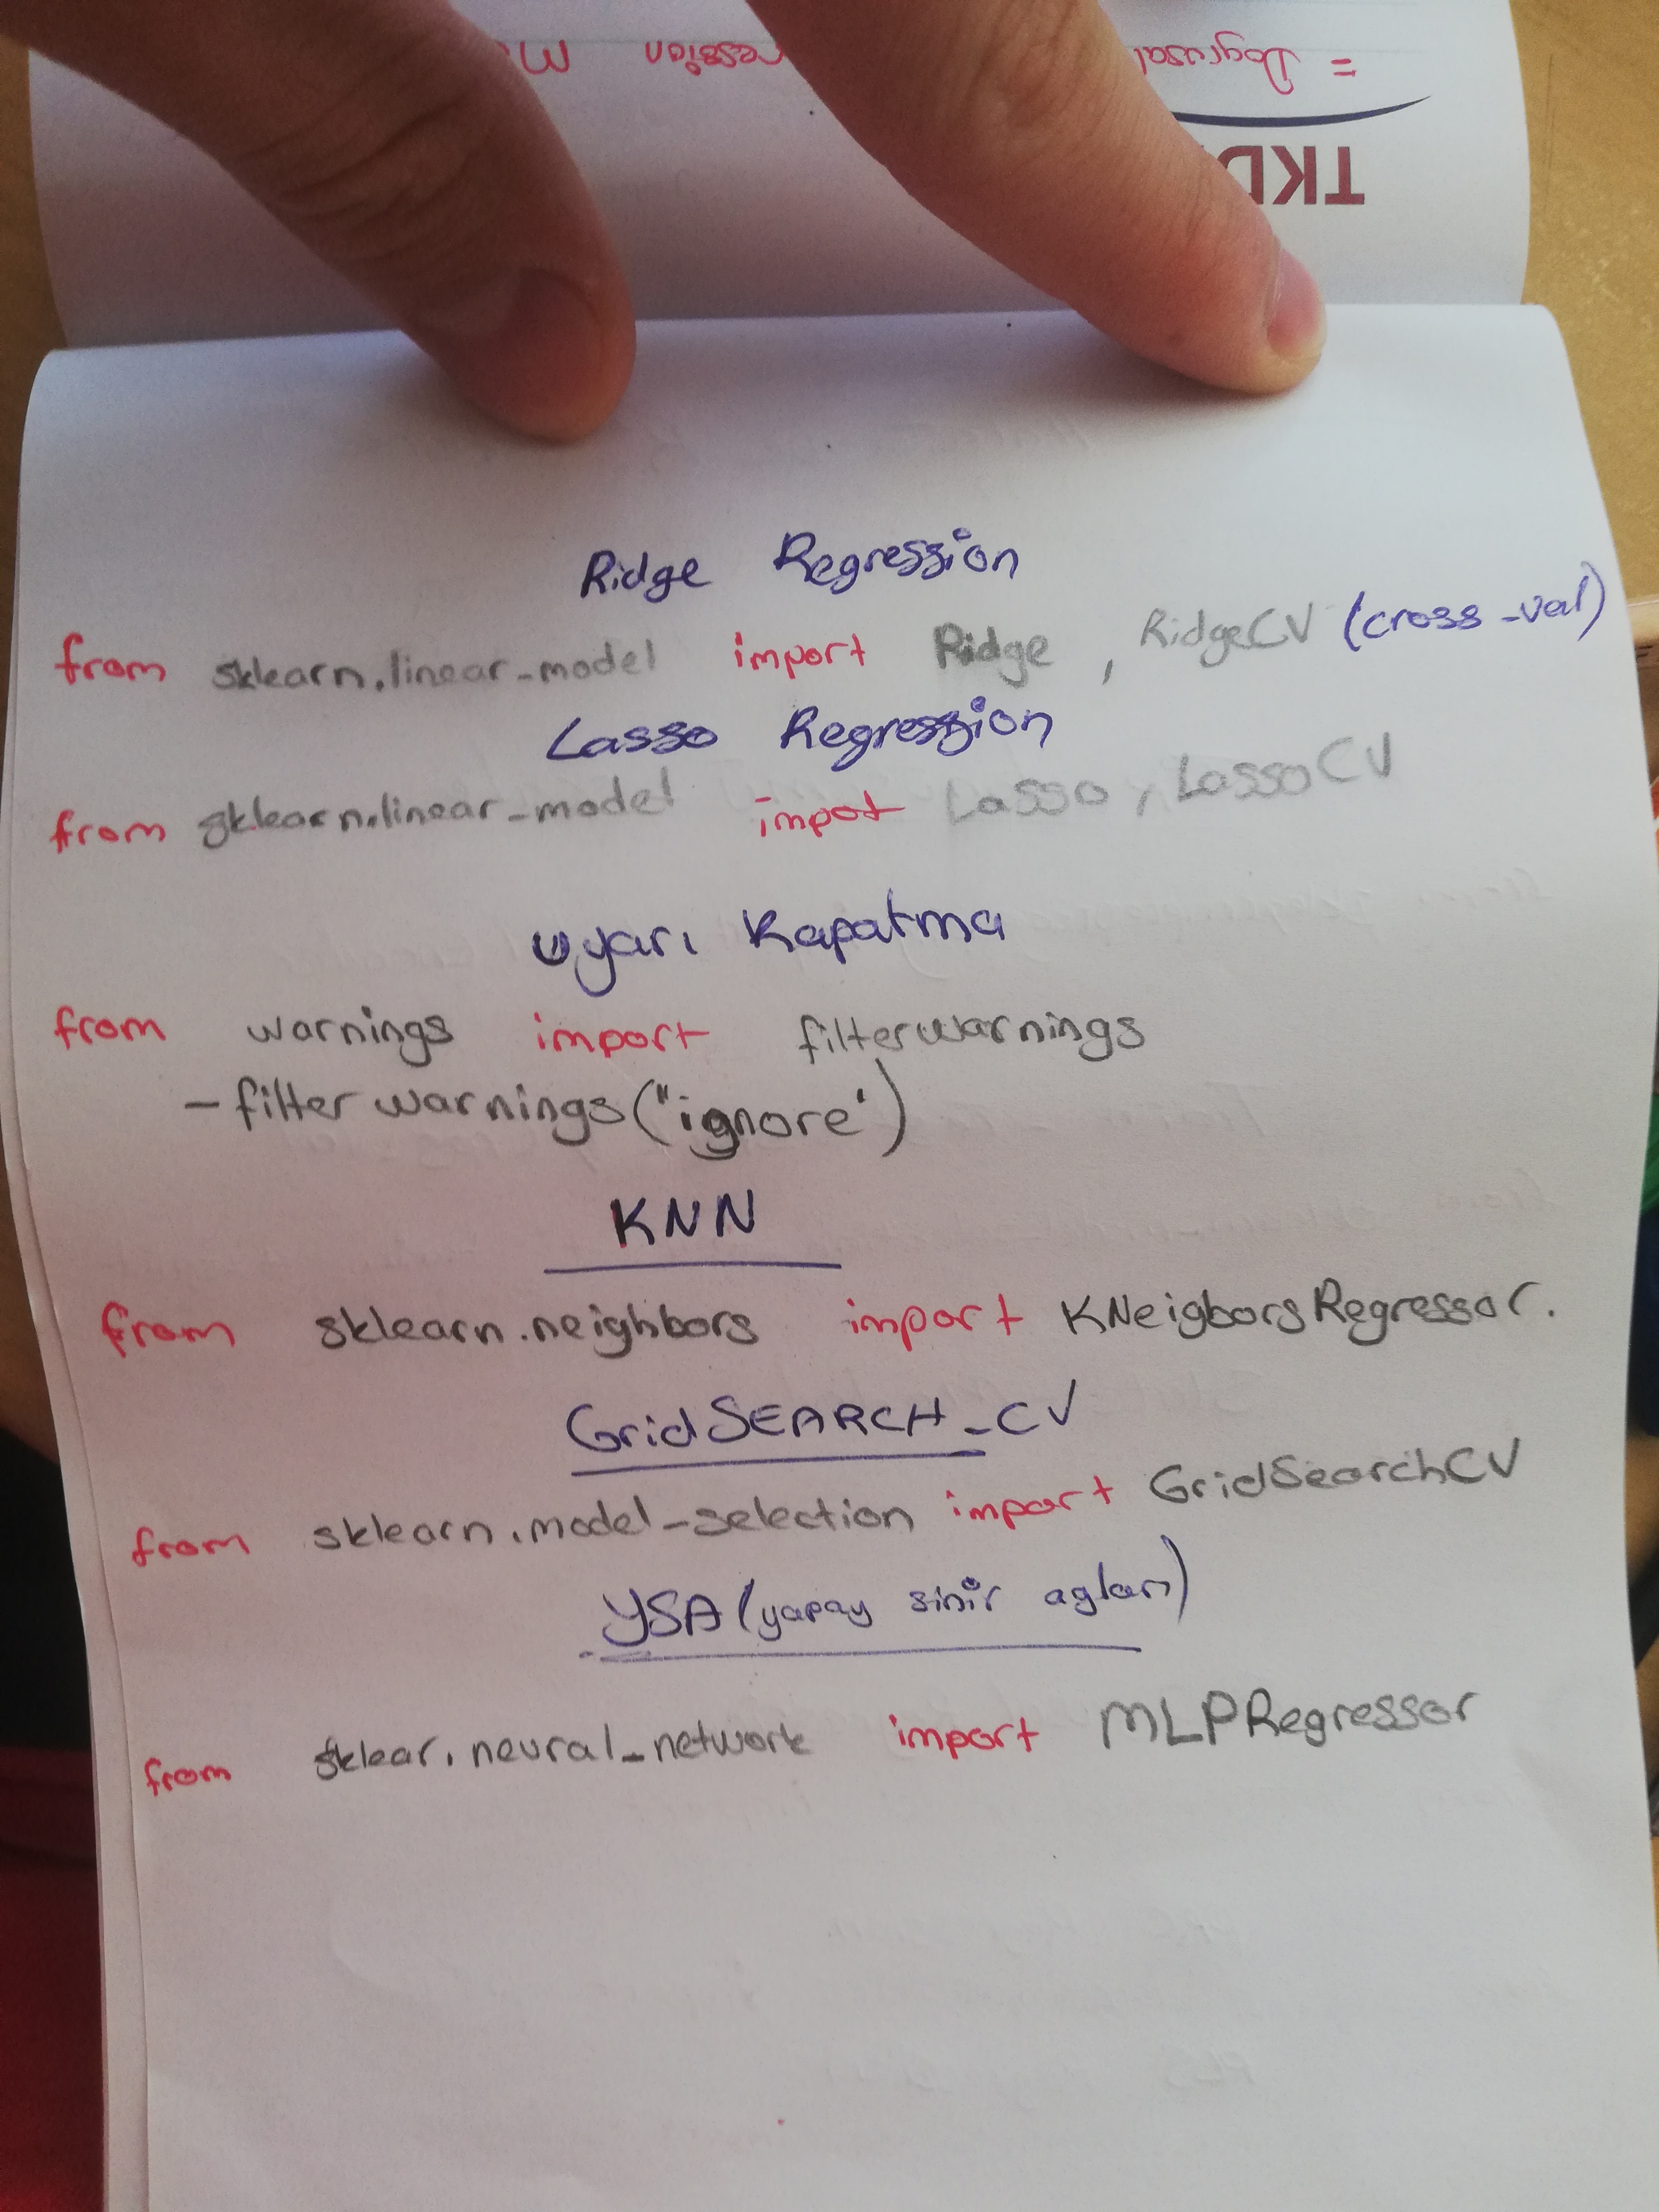 = Dogrusal ression
TKD
Ridge Regression
from sklearn.linear_model import Ridge, RidgeCV (cross-val)
Lasso Regression
from sklearn.linear_model impot Lasso, LassoCV
Uyarı Kapatma
from warnings import filterwarnings
- filterwarnings("ignore')
KNN
from sklearn.neighbors import KNeigborsRegressor.
GridSEARCH_CV
from sklearn.model_selection import GridSearchCV
YSA (yapay sinir agları)
from sklear.neural_network import MLPRegressor